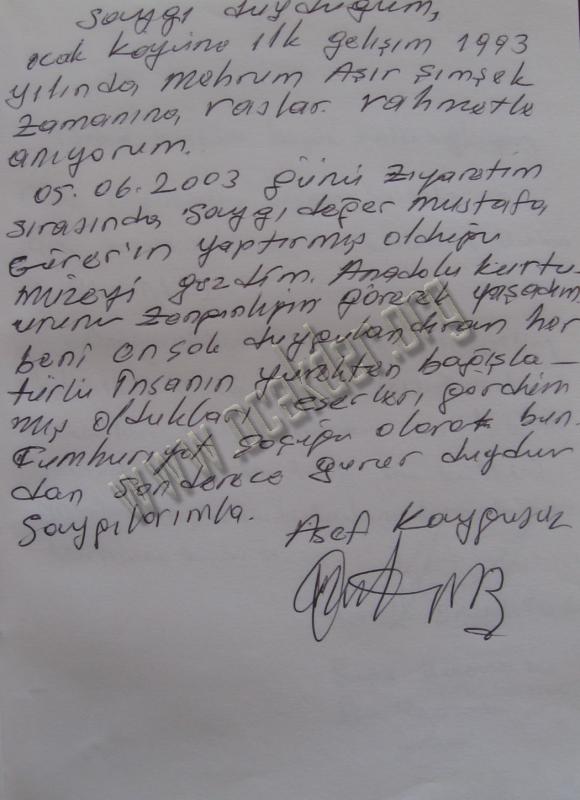 Saygı duyduğum,
ocak köyüne ilk gelişim 1993
yılında, Mehrum Aşır Şimşek
zamanına, raslar. rahmetle
anıyorum.
05.06.2003 günü zıyaretim
sırasında, Saygıdeğer mustafa,
Gürer'in yaptırmış olduğu
müzeyi gezdim. Anadolu kurtu-
zenginliğin görerek yaşadım
beni ençok duygulandıran her
türlü insanın yürekten bağışla-
mış oldukları eserleri gördüm
Cumhuriyet çocuğu olarak bun-
dan Sonderece gurur duydum
Saygılarımla.
Asef Kaygusuz
www.ocakder.org